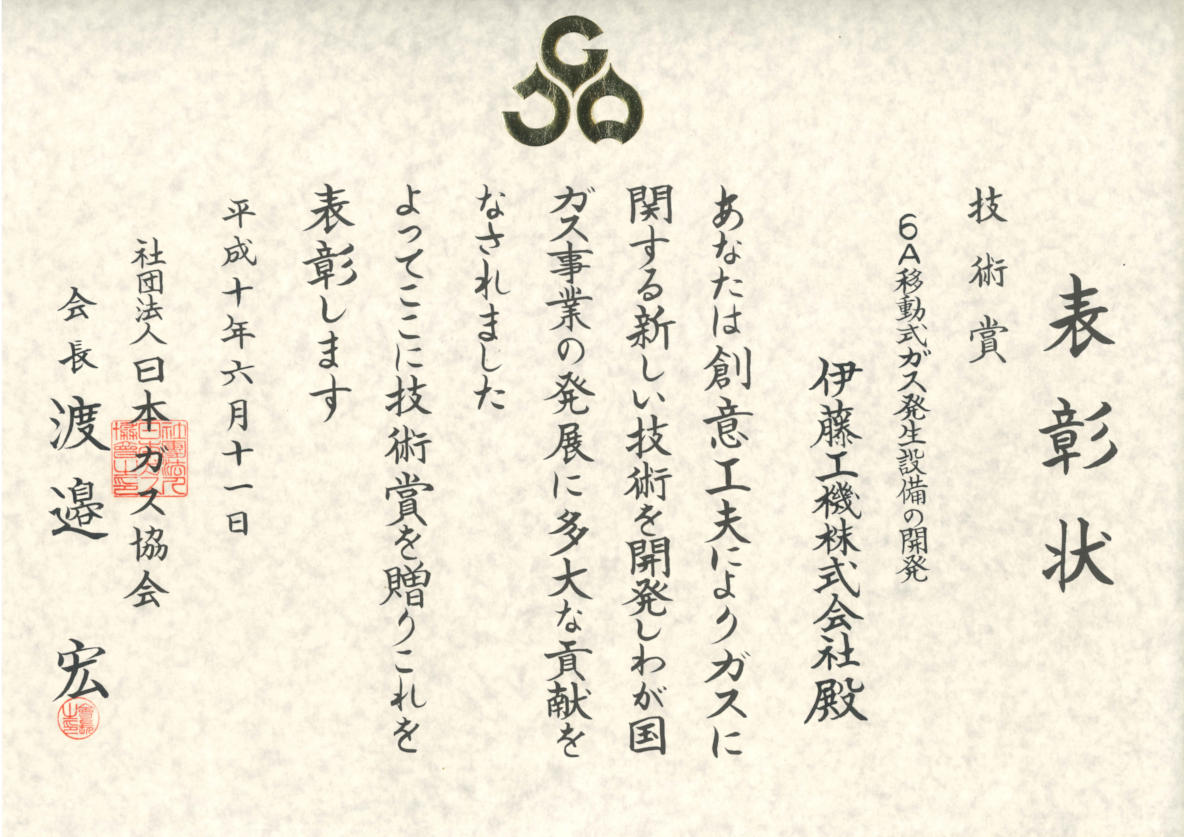 表彰状
技術賞
6A移動式ガス発生設備の開発
伊藤工機株式会社殿
あなたは創意工夫によりガスに
関する新しい技術を開発しわが国
ガス事業の発展に多大な貢献を
なされました
よってここに技術賞を贈りこれを
表彰します
平成十年六月十一日
社団法人日本ガス協会
会長 渡邉 宏